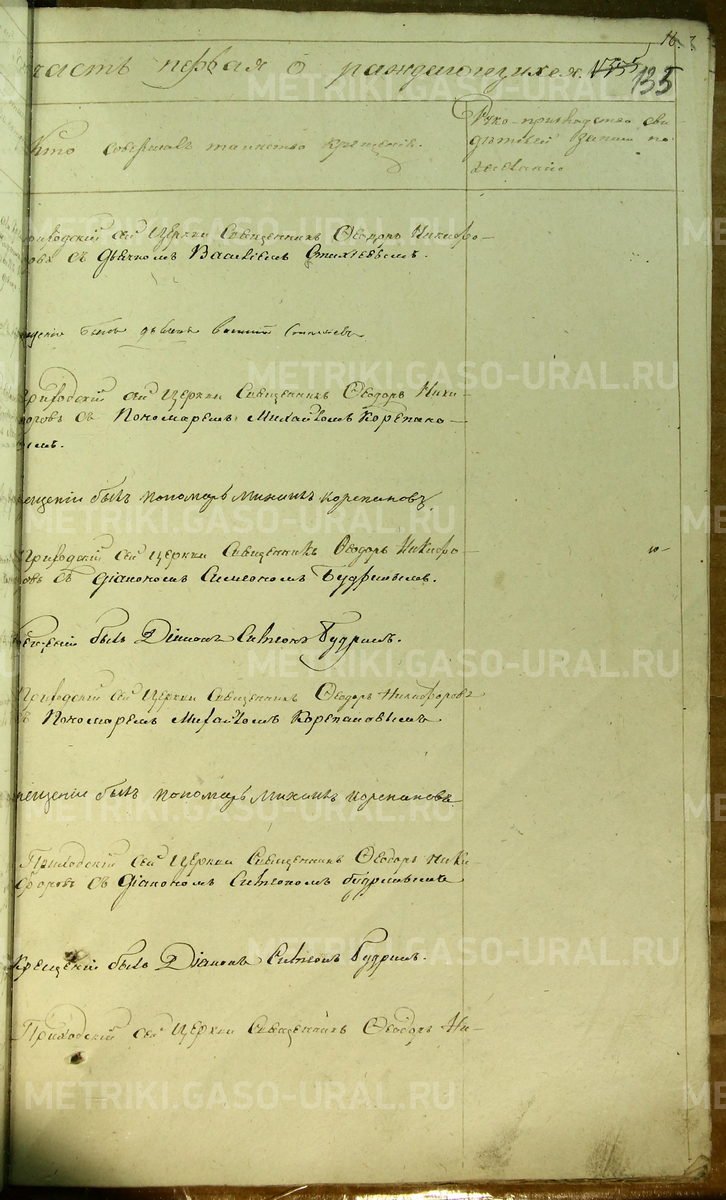 16.
часть первая о рождающихся.
135
Кто совершалъ таинство крещенія.
Руко-прикладство сви-
дѣтелей записи по
желанію
приходскій сей Церкви Священникъ Ѳеодоръ Никифо-
ровъ съ Дьячкомъ Василіемъ
щеніи былъ дьячекъ
Приходскій сей Церкви Священникъ Ѳеодоръ Ники-
форовъ съ Пономаремъ Михайломъ Корепано-
вымъ.
рещеніи былъ пономарь Михаилъ Корепановъ
Приходскій сей церкви Священникъ Ѳеодоръ Никифо-
ровъ съ Діакономъ Симеономъ Будринымъ.
рещеніи былъ Діаконъ Симеонъ Будринъ.
Приходскій сей Церкви Священникъ Ѳеодоръ Никифоровъ
съ Пономаремъ Михайломъ Корепановымъ
рещеніи былъ пономарь Михаилъ Корепановъ
Приходскій сей Церкви Священникъ Ѳеодоръ Ники-
форовъ съ Діакономъ Симеономъ Будринымъ
крещеніи былъ Діаконъ Симеонъ Будринъ.
Приходскій сей Церкви Священникъ Ѳеодоръ Ни-
METRIKI.GASO-URAL.RU